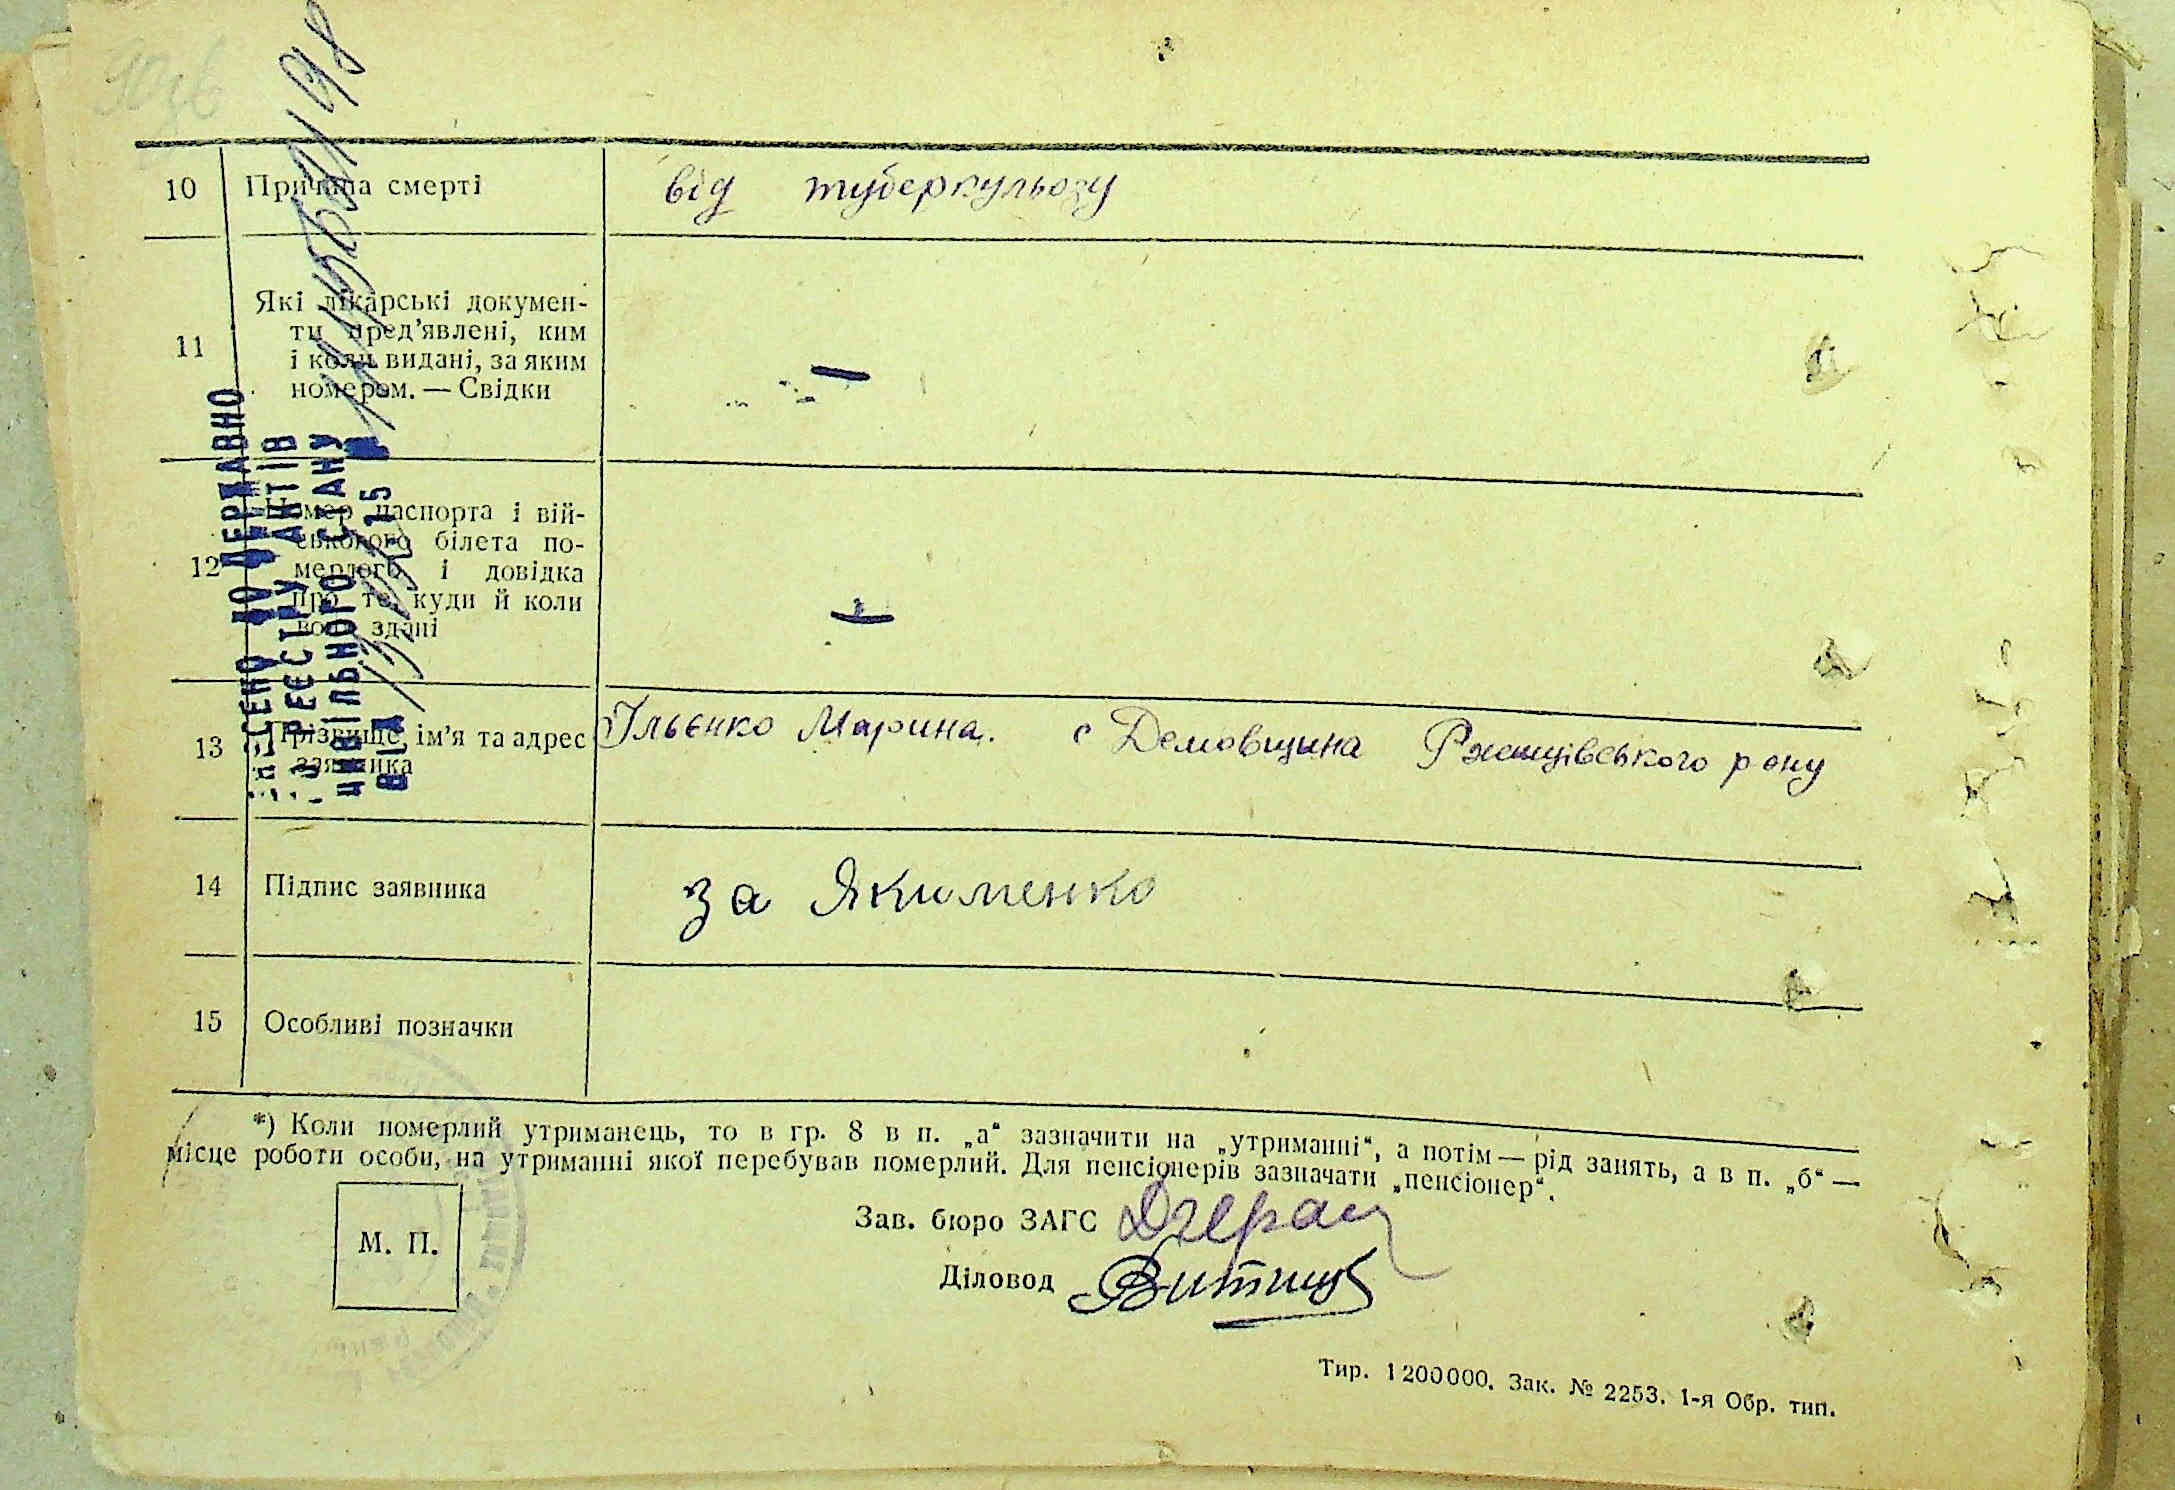 10 Причина смерті від туберкульозу
11 Які лікарські докумен-
ти пред'явлені, ким
і коли видані, за яким
номером. — Свідки —
12 Номер паспорта і вій-
ськового білета по-
мерлого і довідка
про те, куди й коли
вони здані —
13 Прізвище, ім'я та адрес Ільєнко Марина. с Демовщина Ржищівського р ону
заявника
14 Підпис заявника за Якименко
15 Особливі позначки
*) Коли померлий утриманець, то в гр. 8 в п. „а“ зазначити на „утриманні“, а потім — рід занять, а в п. „б“ —
місце роботи особи, на утриманні якої перебував померлий. Для пенсіонерів зазначати „пенсіонер“.
М. П.
Зав. бюро ЗАГС
Діловод
Тир. 1 200 000. Зак. № 2253. 1-я Обр. тип.
ВНЕСЕНО ДО ДЕРЖАВНО
РЕЄСТРУ АКТІВ
ЦИВІЛЬНОГО СТАНУ
ВІД